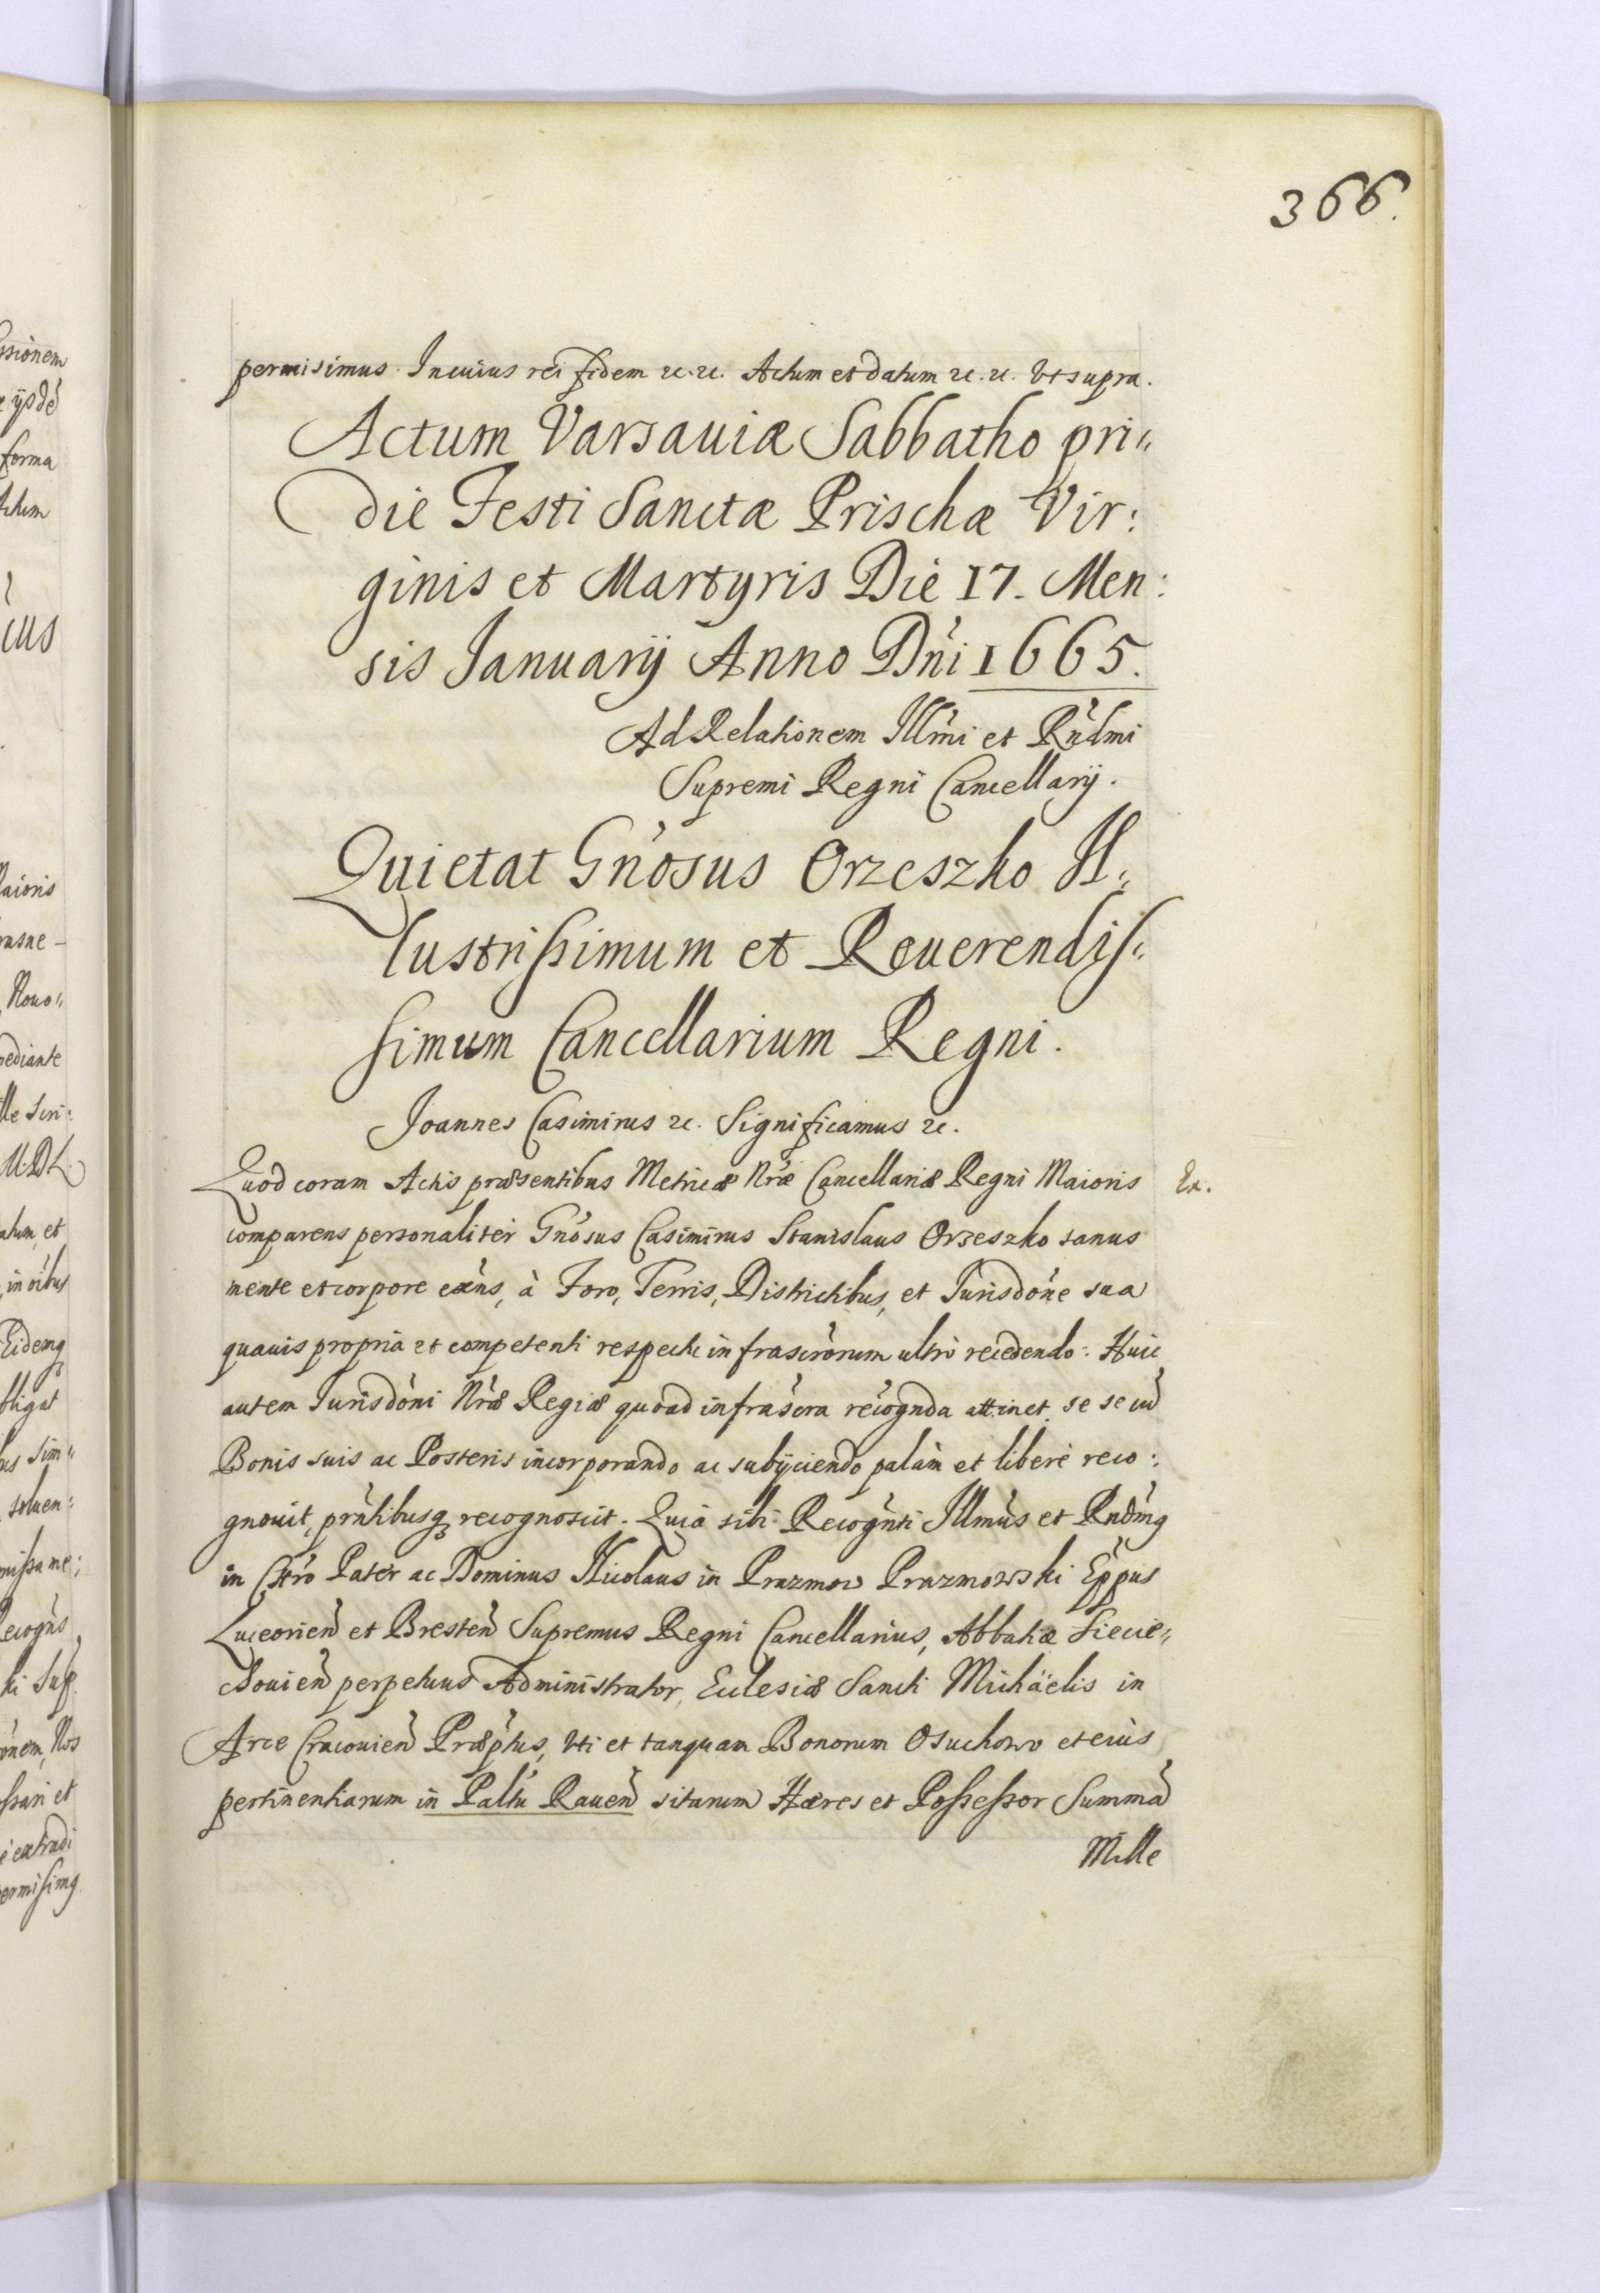 366.
permisimus. In cuius rei fidem &c. &c. Actum et datum &c. &c. Ut supra.
Actum Varsauiæ Sabbatho pri„
die Festi Sanctæ Prischæ Vir:
ginis et Martyris Die 17. Men:
sis Januarij Anno Dni 1665.
Ad Relationem Illmi et Rndmi
Supremi Regni Cancellarij.
Quietat Gnosus Orzeszko Il„
lustrissimum et Reuerendis„
simum Cancellarium Regni.
Joannes Casimirus &c. Significamus &c.
Quod coram Actis præsentibus Metricæ Nræ Cancellariæ Regni Maioris
Ex.
comparens personaliter Gnosus Casimirus Stanislaus Orzeszko sanus
mente et corpore exns, à Foro, Terris, Districtibus, et Jurisdone sua
quauis propria et competenti respectu infrascrorum ultro recedendo: Huic
autem Jurisdoni Nræ Regiæ quoad infrascra recognda attinet, se se cu
Bonis suis ac Posteris incorporando ac subijciendo palàm et liberè reco:
gnouit, prntibusq recognoscit. Quia sibi Recognti Illmus et Rndmq
in Chro Pater ac Dominus Nicolaus in Prazmow Prazmowski Eppus
Luceorien et Bresten Supremus Regni Cancellarius, Abbatiæ Siecie„
chouien perpetuus Administrator, Ecclesiæ Sancti Michäelis in
Arce Cracouien Præptus, Uti et tanquam Bonorum Osuchowo et eius
pertinentiarum in Paltu Rauen sitarum Hæres et Possessor Summa
Mille